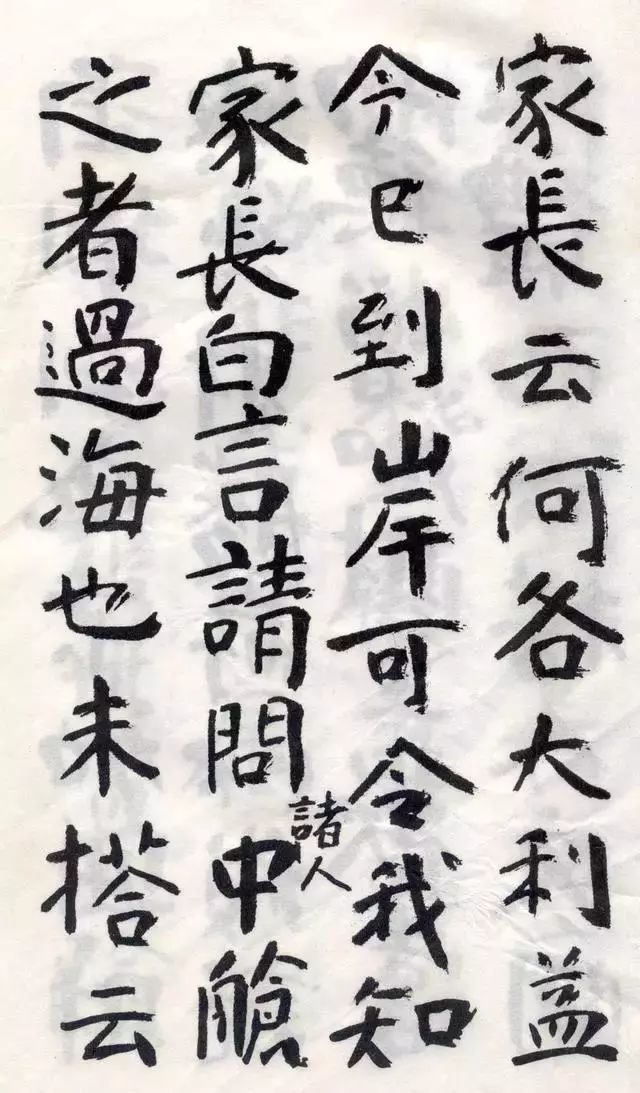 家長云何各大利益
今已到岸可令我知
家長白言請問中艙
諸人
之者過海也未搭云